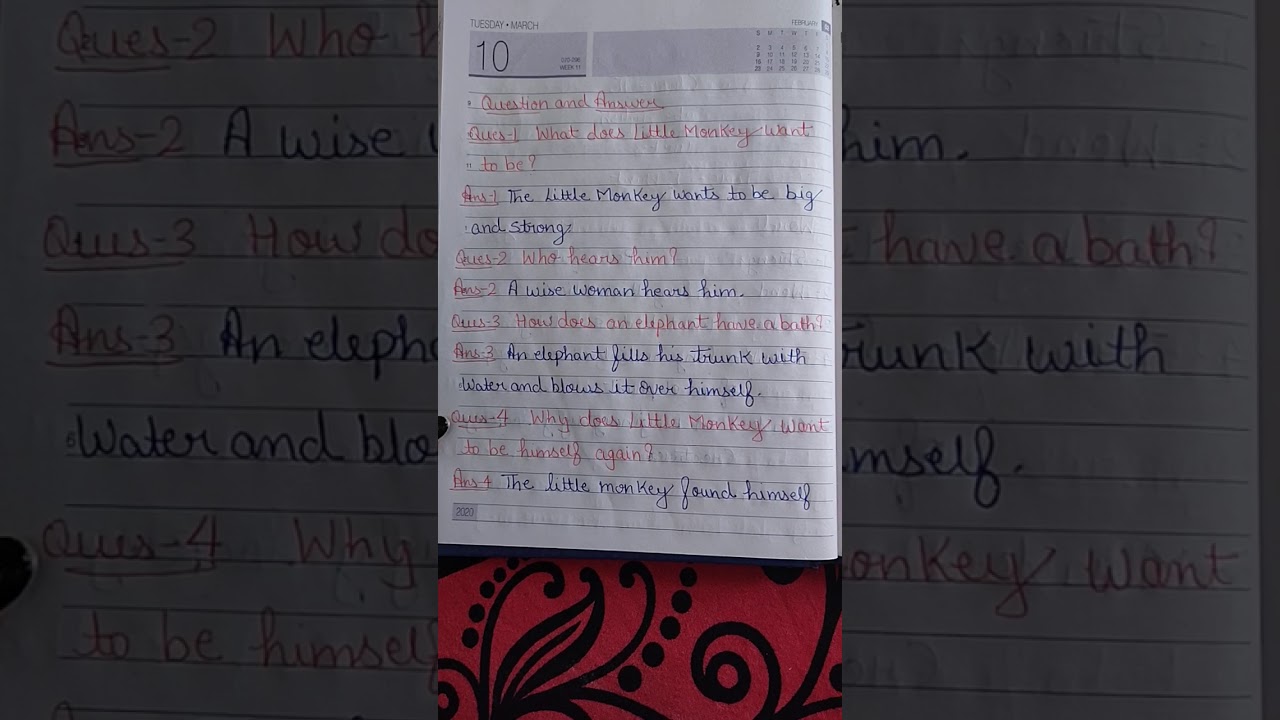 TUESDAY • MARCH
FEBRUARY
10
WEEK 11
S M T W T F
2 3 4 5 6 7
9 10 11 12 13 14
16 17 18 19 20 21
23 24 25 26 27 28
Question and Answer
Ques-1 What does Little Monkey want
to be?
Ans-1 The Little Monkey wants to be big
and strong
Ques-2 Who hears him?
Ans-2 A wise woman hears him.
Ques-3 How does an elephant have a bath?
Ans-3 An elephant fills his trunk with
Water and blows it over himself.
Ques-4 Why does Little Monkey want
to be himself again?
Ans-4 The little monkey found himself
2020